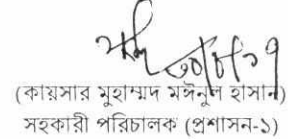 ৩০/৮/১৭
(কায়সার মুহাম্মদ মঈনুল হাসান)
সহকারী পরিচালক (প্রশাসন-১)